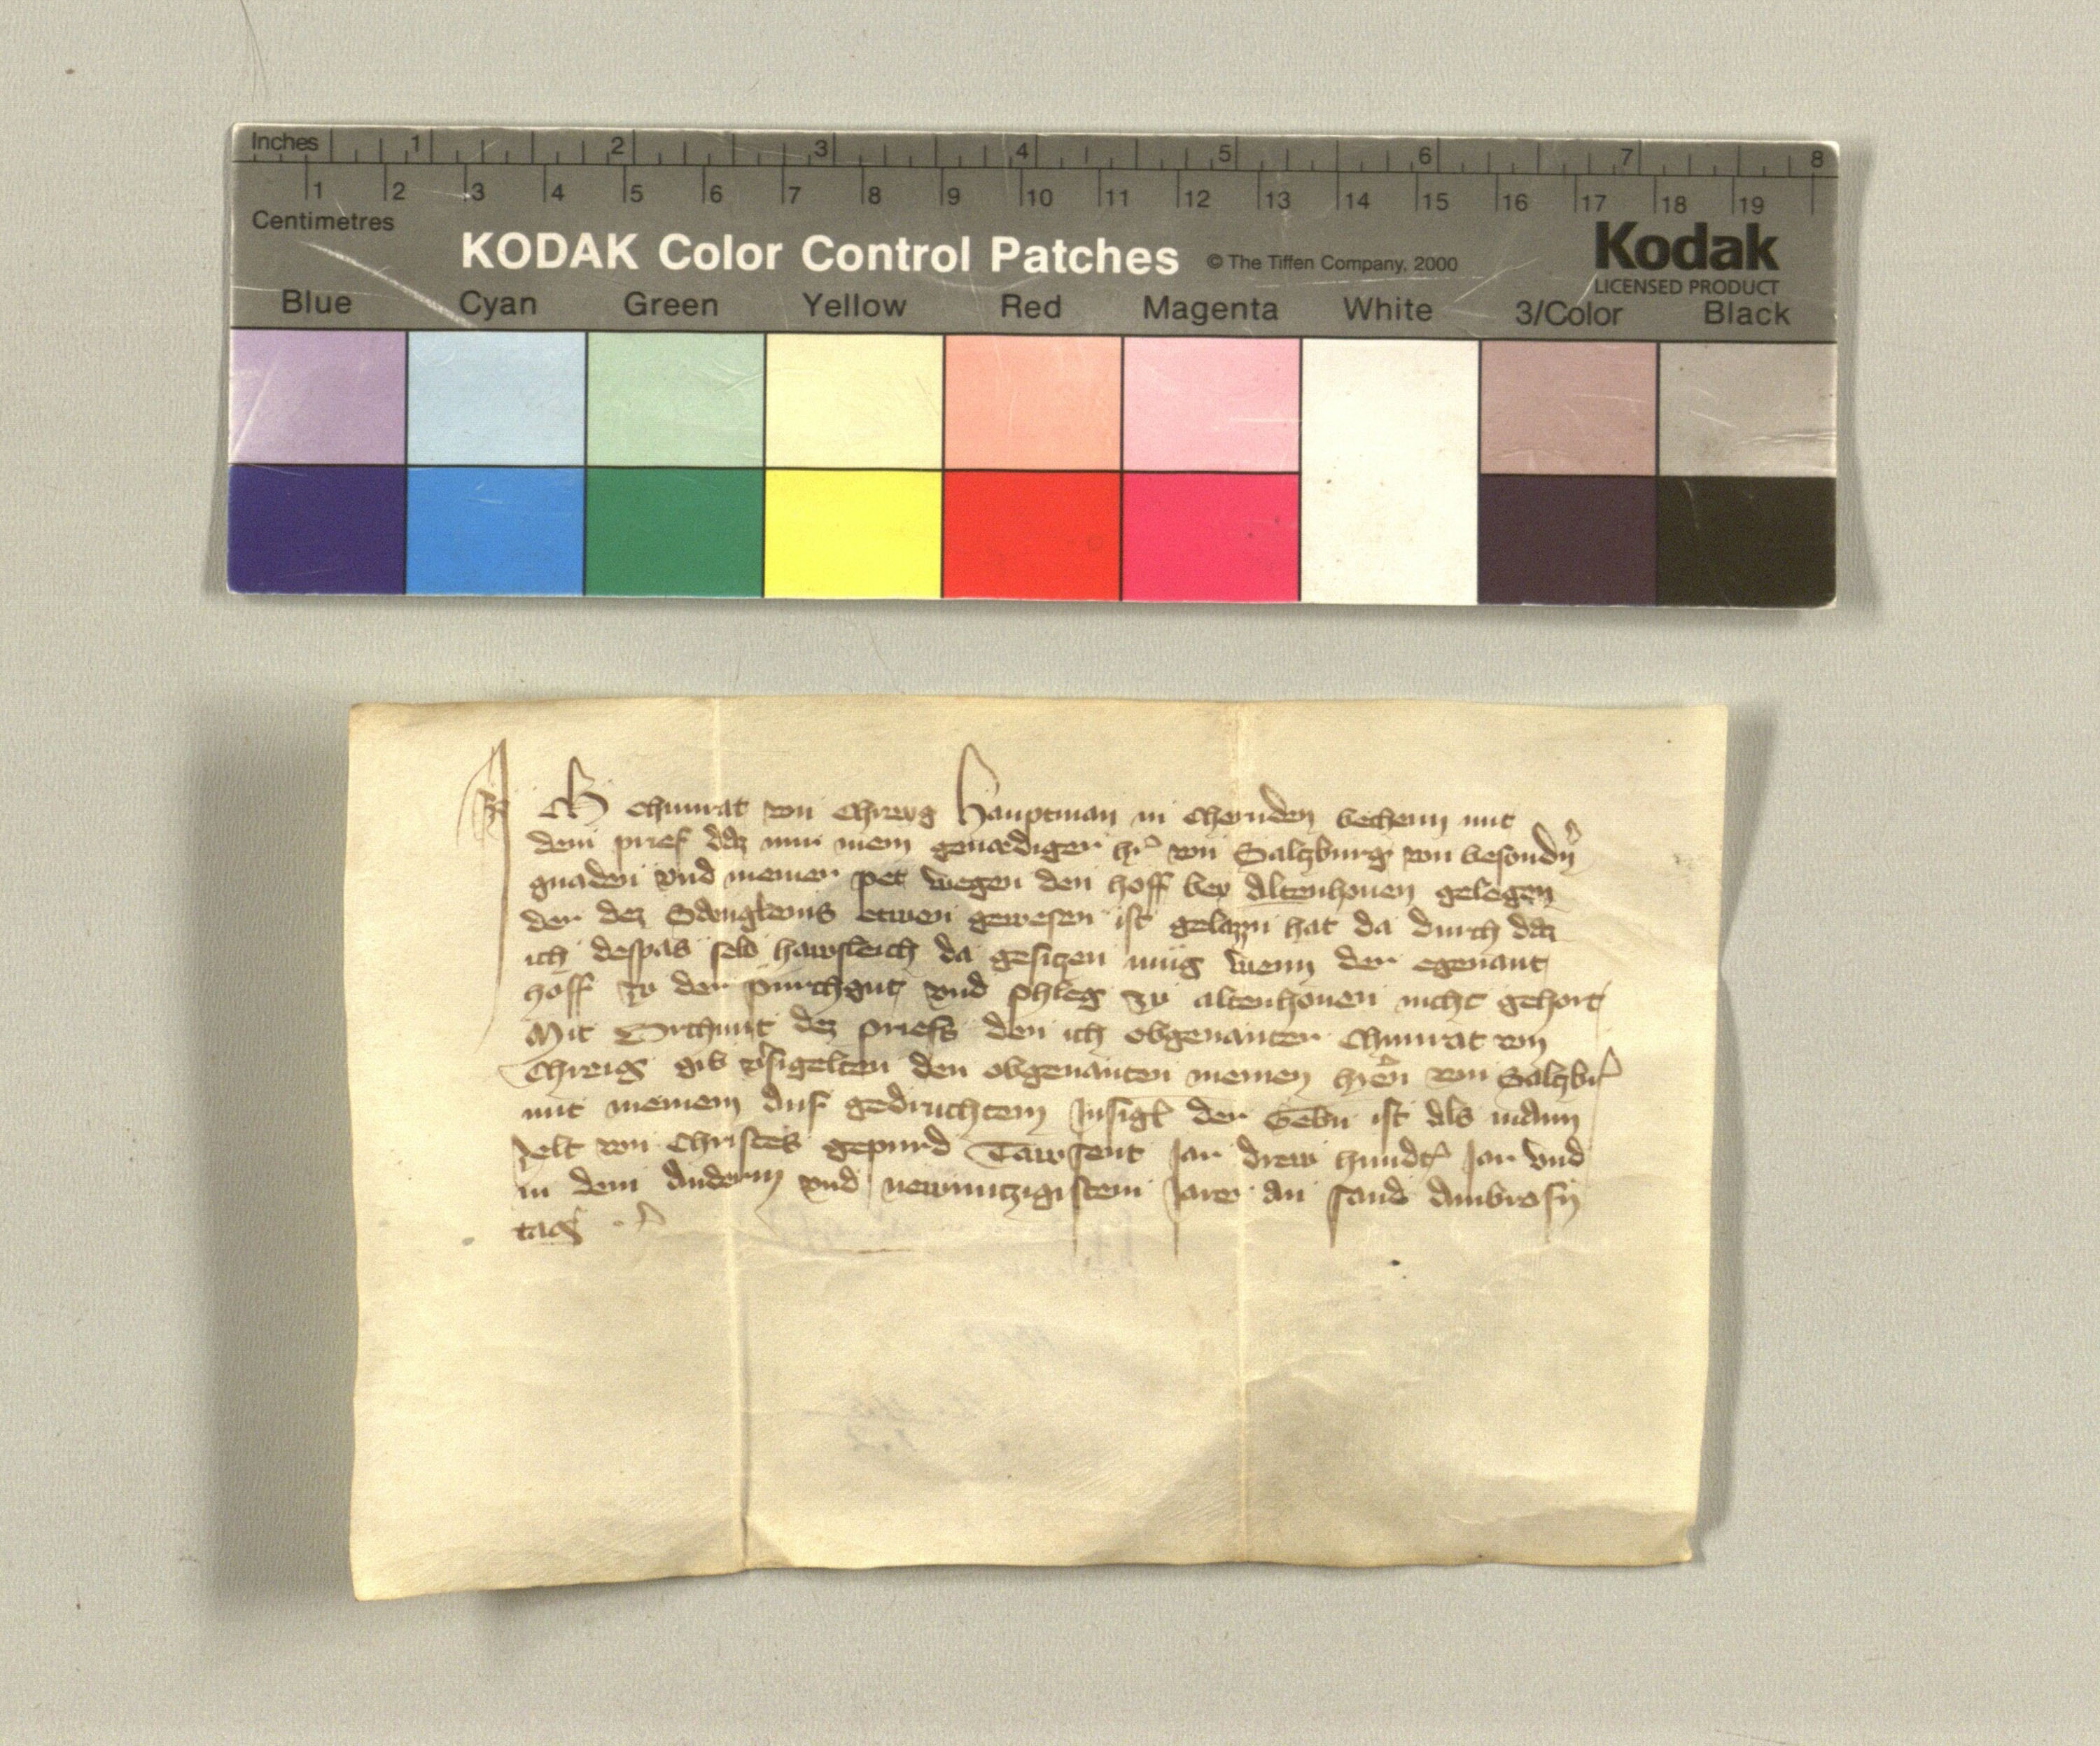 Inches 1 2 3 4 5 6 7 8
1 2 3 4 5 6 7 8 9 10 11 12 13 14 15 16 17 18 19
Centimetres
KODAK Color Control Patches © The Tiffen Company, 2000 Kodak
LICENSED PRODUCT
Blue Cyan Green Yellow Red Magenta White 3/Color Black
Ich Chunrat von Chreyg Hauptman in Chernden vechenn mit
dem prief daz mir mein genædiger hr̄ von Salczburg von besondn̄
gnaden vnd meiner pet wegen den hoff bey Altenhouen gelegen
der dez etwen gewesen ist gelazzn hat da durch daz
ich despas selb hawsleich da gesiczen müg wenn der egenant
hoff zu der purchgut vnd phleg zu altenhouen nicht gehort
Mit Vrchunt dez priefs den ich obgenanter Chunrat von
Chreig gib v̄sigelten den obgenanten meinen hr̄en von Salczbr̄
mit meinem auf gedruchtem Insigl̄ der Gebn̄ ist als mann
zelt von Christes gepurd Tawsent Jar drew hundt̄ Jar vnd
in dem andern vnd newnczigistem Jare an sand Ambrosy
tag